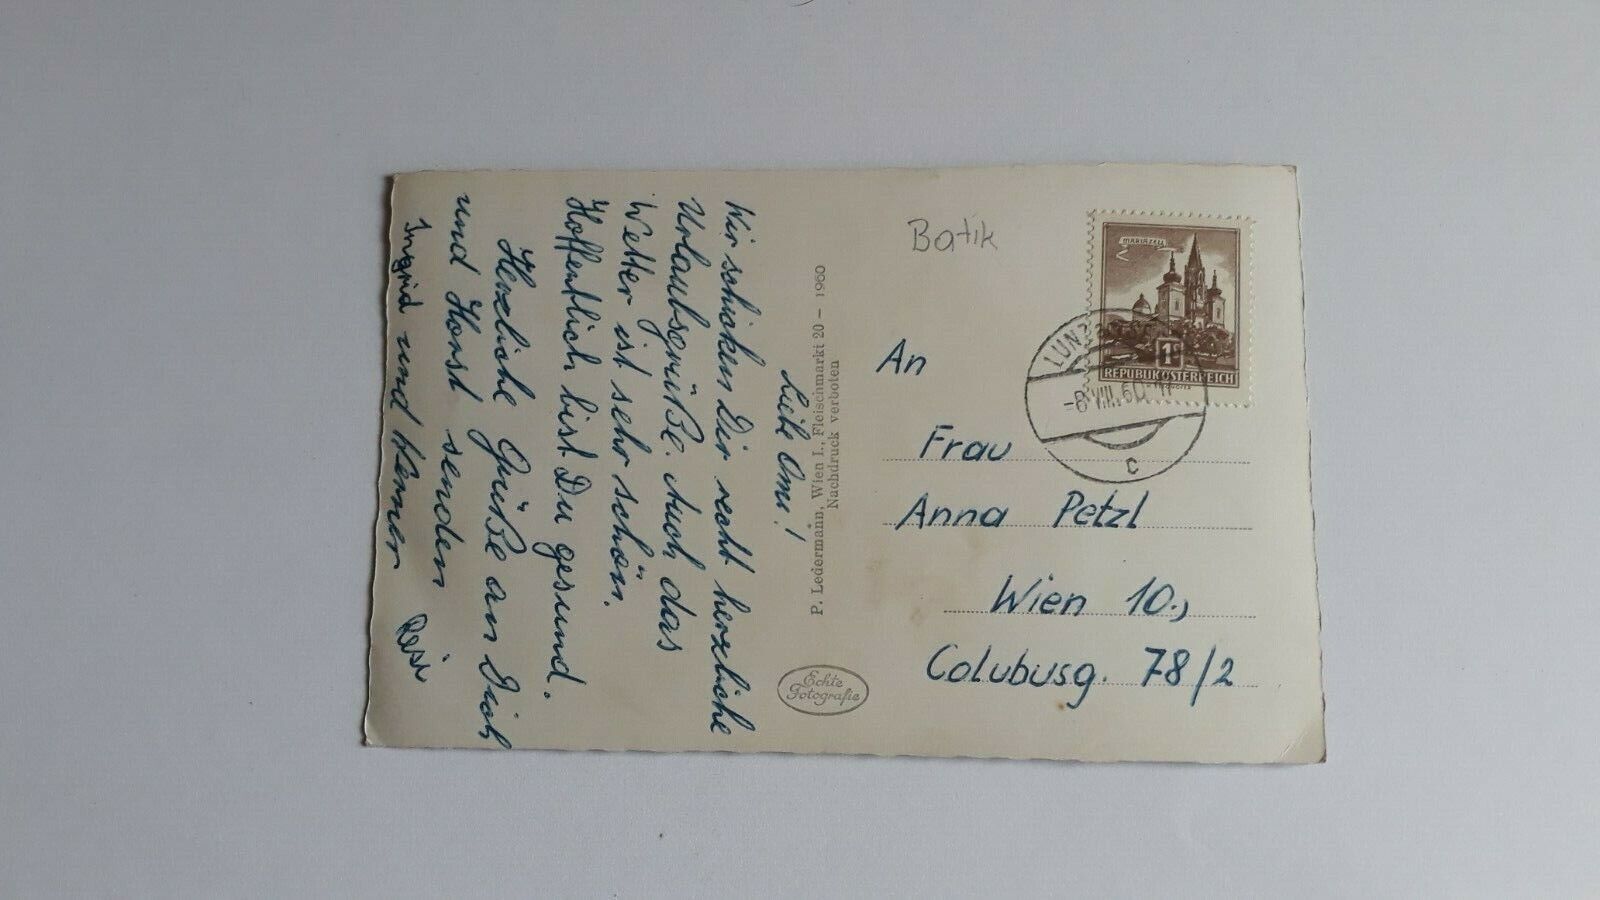 Liebe Omi!
Wir schicken Dir recht herzliche
Urlaubsgrüße. Auch das
Wetter ist sehr schön.
Hoffentlich bist Du gesund.
Herzliche Grüße an Dich
und Horst senden
Ingrid und Werner Resi
P. Ledermann, Wien I., Fleischmarkt 20 – 1960
Nachdruck verboten
Echte
Fotografie
Batik
MARIAZELL
1S
REPUBLIK ÖSTERREICH
LUNZ
-8.VIII.60
c
An
Frau
Anna Petzl
Wien 10.,
Colubusg. 78/2